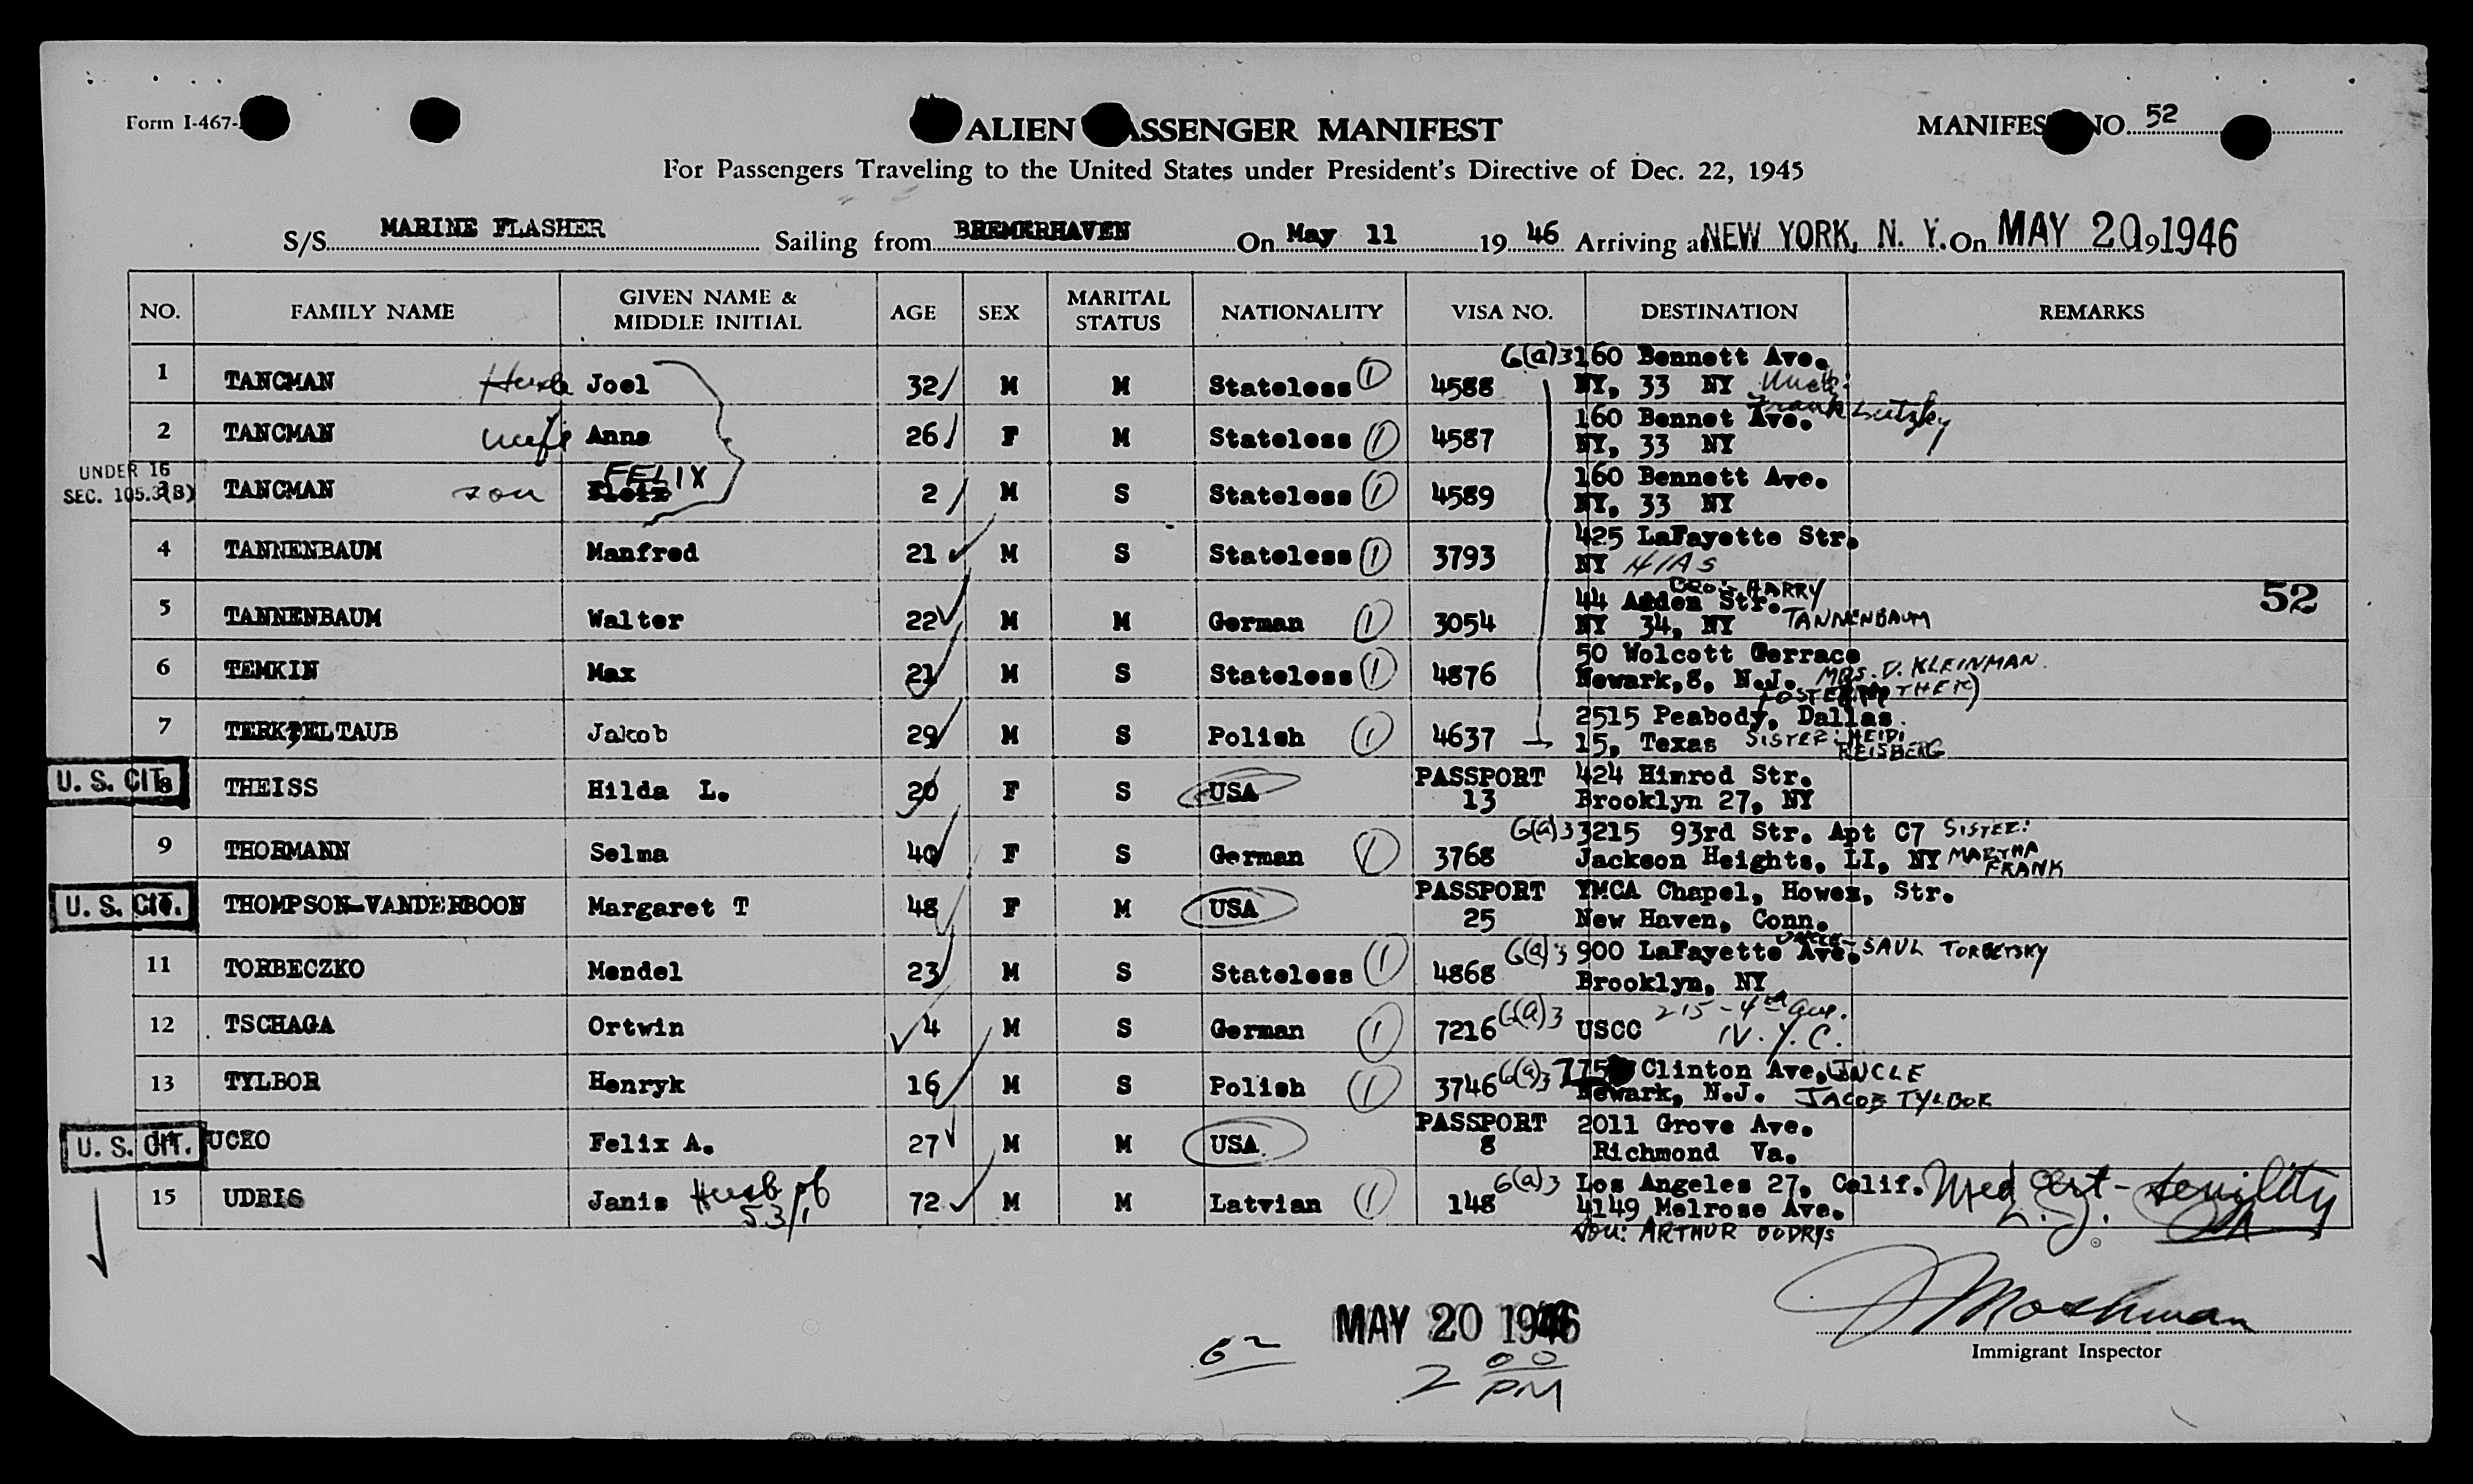 Form I-467-
ALIEN ASSENGER MANIFEST
MANIFES NO. 52
For Passengers Traveling to the United States under President's Directive of Dec. 22, 1945
S/S MARINE FLASHER Sailing from BREMERHAVEN On May 11 19 46 Arriving a NEW YORK, N. Y. On MAY 20 19 1946
NO. FAMILY NAME GIVEN NAME & MIDDLE INITIAL AGE SEX MARITAL STATUS NATIONALITY VISA NO. DESTINATION REMARKS
1 TANCMAN Husb Joel 32 M M Stateless 1 4588 6(a)3 160 Bennett Ave.
NY, 33 NY Uncle: Frank Lutzky
2 TANCMAN wife Anna 26 F M Stateless 1 4587 160 Bennet Ave.
NY, 33 NY
UNDER 16
SEC. 105.3(B) 3 TANCMAN son FELIX 2 M S Stateless 1 4589 160 Bennett Ave.
NY, 33 NY
4 TANNENBAUM Manfred 21 M S Stateless 1 3793 425 LaFayette Str.
NY HIAS
5 TANNENBAUM Walter 22 M M German 1 3054 44 Arden Str. HARRY
NY 34, NY TANNENBAUM
52
6 TEMKIN Max 21 M S Stateless 1 4876 50 Wolcott Gerrace
Newark,8, N.J. MRS. D. KLEINMAN.
FOSTER MOTHER)
7 TERK ELTAUB Jakob 29 M S Polish 1 4637 2515 Peabody, Dallas.
15, Texas SISTER: HEIDI REISBERG
U. S. CIT. 8 THEISS Hilda L. 20 F S USA PASSPORT 13 424 Himrod Str.
Brooklyn 27, NY
9 THORMANN Selma 40 F S German 1 3768 6(a)3 3215 93rd Str. Apt C7 SISTER:
Jackson Heights, LI, NY MARTHA FRANK
U. S. CIT. THOMPSON-VANDERBOON Margaret T 48 F M USA PASSPORT 25 YMCA Chapel, Howex, Str.
New Haven, Conn.
11 TORBECZKO Mendel 23 M S Stateless 1 4868 6(a)3 900 LaFayette Ave. UNCLE- SAUL TORBETSKY
Brooklyn, NY
12 TSCHAGA Ortwin 4 M S German 1 7216 6(a)3 USCC 215-4th Ave.
N.Y.C.
13 TYLBOR Henryk 16 M S Polish 1 3746 6(a)3 775 Clinton Ave. UNCLE
Newark, N.J. JACOB TYLBOR
U. S. CIT. UCKO Felix A. 27 M M USA PASSPORT 8 2011 Grove Ave.
Richmond Va.
15 UDRIS Janis Husb of 53/1 72 M M Latvian 1 148 6(a)3 Los Angeles 27, Calif.
4149 Melrose Ave. Med Cert - Senility
Son: ARTHUR OODRYS
MAY 20 1946
62
2 00 PM
J Moshman
Immigrant Inspector